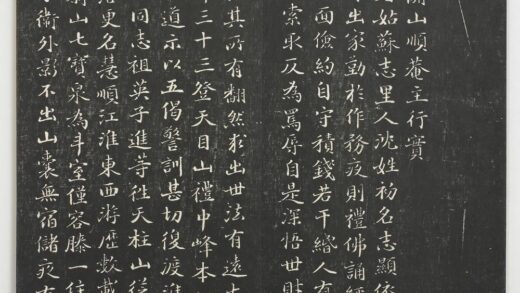 山順菴主行實
姑蘇志里人沈姓初名志顯依
出家勤於作務夜則禮佛誦經
面儉約自守積錢若干緡人有
索取反為罵辱自是深悟世財
其所有翻然求出世法有遠
三十三登天目山禮中峰本
道示以五偈警訓甚切復渡淮
同志祖英子進等往天柱山從
更名慧順江淮東西游歷數載
山七寶泉為斗室僅容膝一住
衛外影不出山囊無宿儲夜